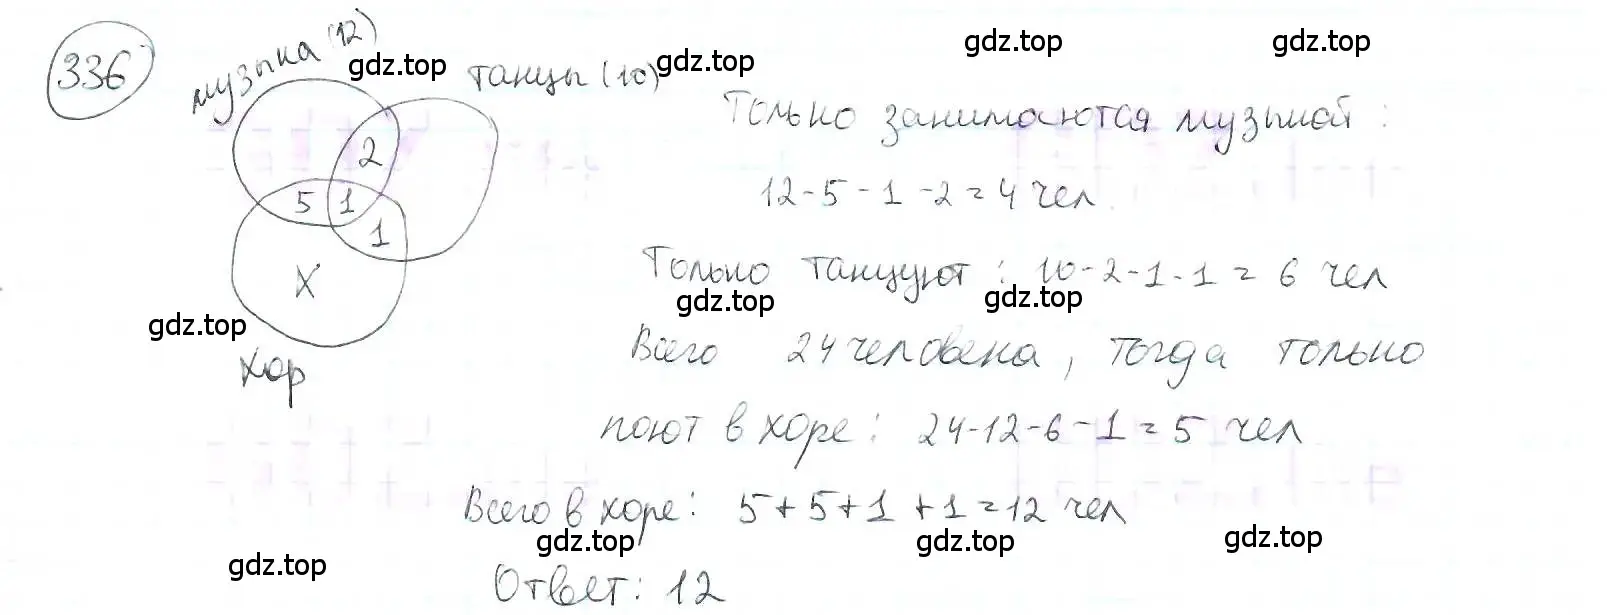 336
музыка (12)
танцы (10)
2
5 1
1
X
хор
Только занимаются музыкой:
12-5-1-2=4 чел.
Только танцуют: 10-2-1-1=6 чел
Всего 24 человека, тогда только
поют в хоре: 24-12-6-1=5 чел
Всего в хоре: 5+5+1+1=12 чел
Ответ: 12
gdz.top
gdz.top
gdz.top
gdz.top
gdz.top
gdz.top
gdz.top
gdz.top
gdz.top
gdz.top
gdz.top